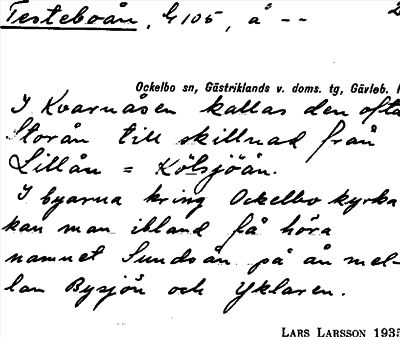 Testeboån, G 105, å -- 2
Ockelbo sn, Gästriklands v. doms. tg, Gävleb. l
I Kvarnåsen kallas den ofta
Storån till skillnad från
Lillån = Kölsjöån.
I byarna kring Ockelbo kyrka
kan man ibland få höra
namnet Sundsån på ån mel-
lan Bysjön och Yklaren.
LARS LARSSON 1935